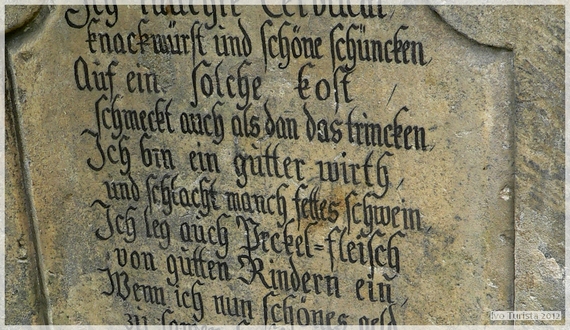 Ich mache Cervlath,
knackwürst und schöne schüncken,
Auf ein solche kost,
schmeckt auch als dan das trincken,
Ich bin ein gutter wirth,
und schlacht manch fettes schwein,
Ich leg auch Peckel=fleisch
von gutten Rindern ein,
Wenn ich nun schönes geld
Ivo Turista 2012